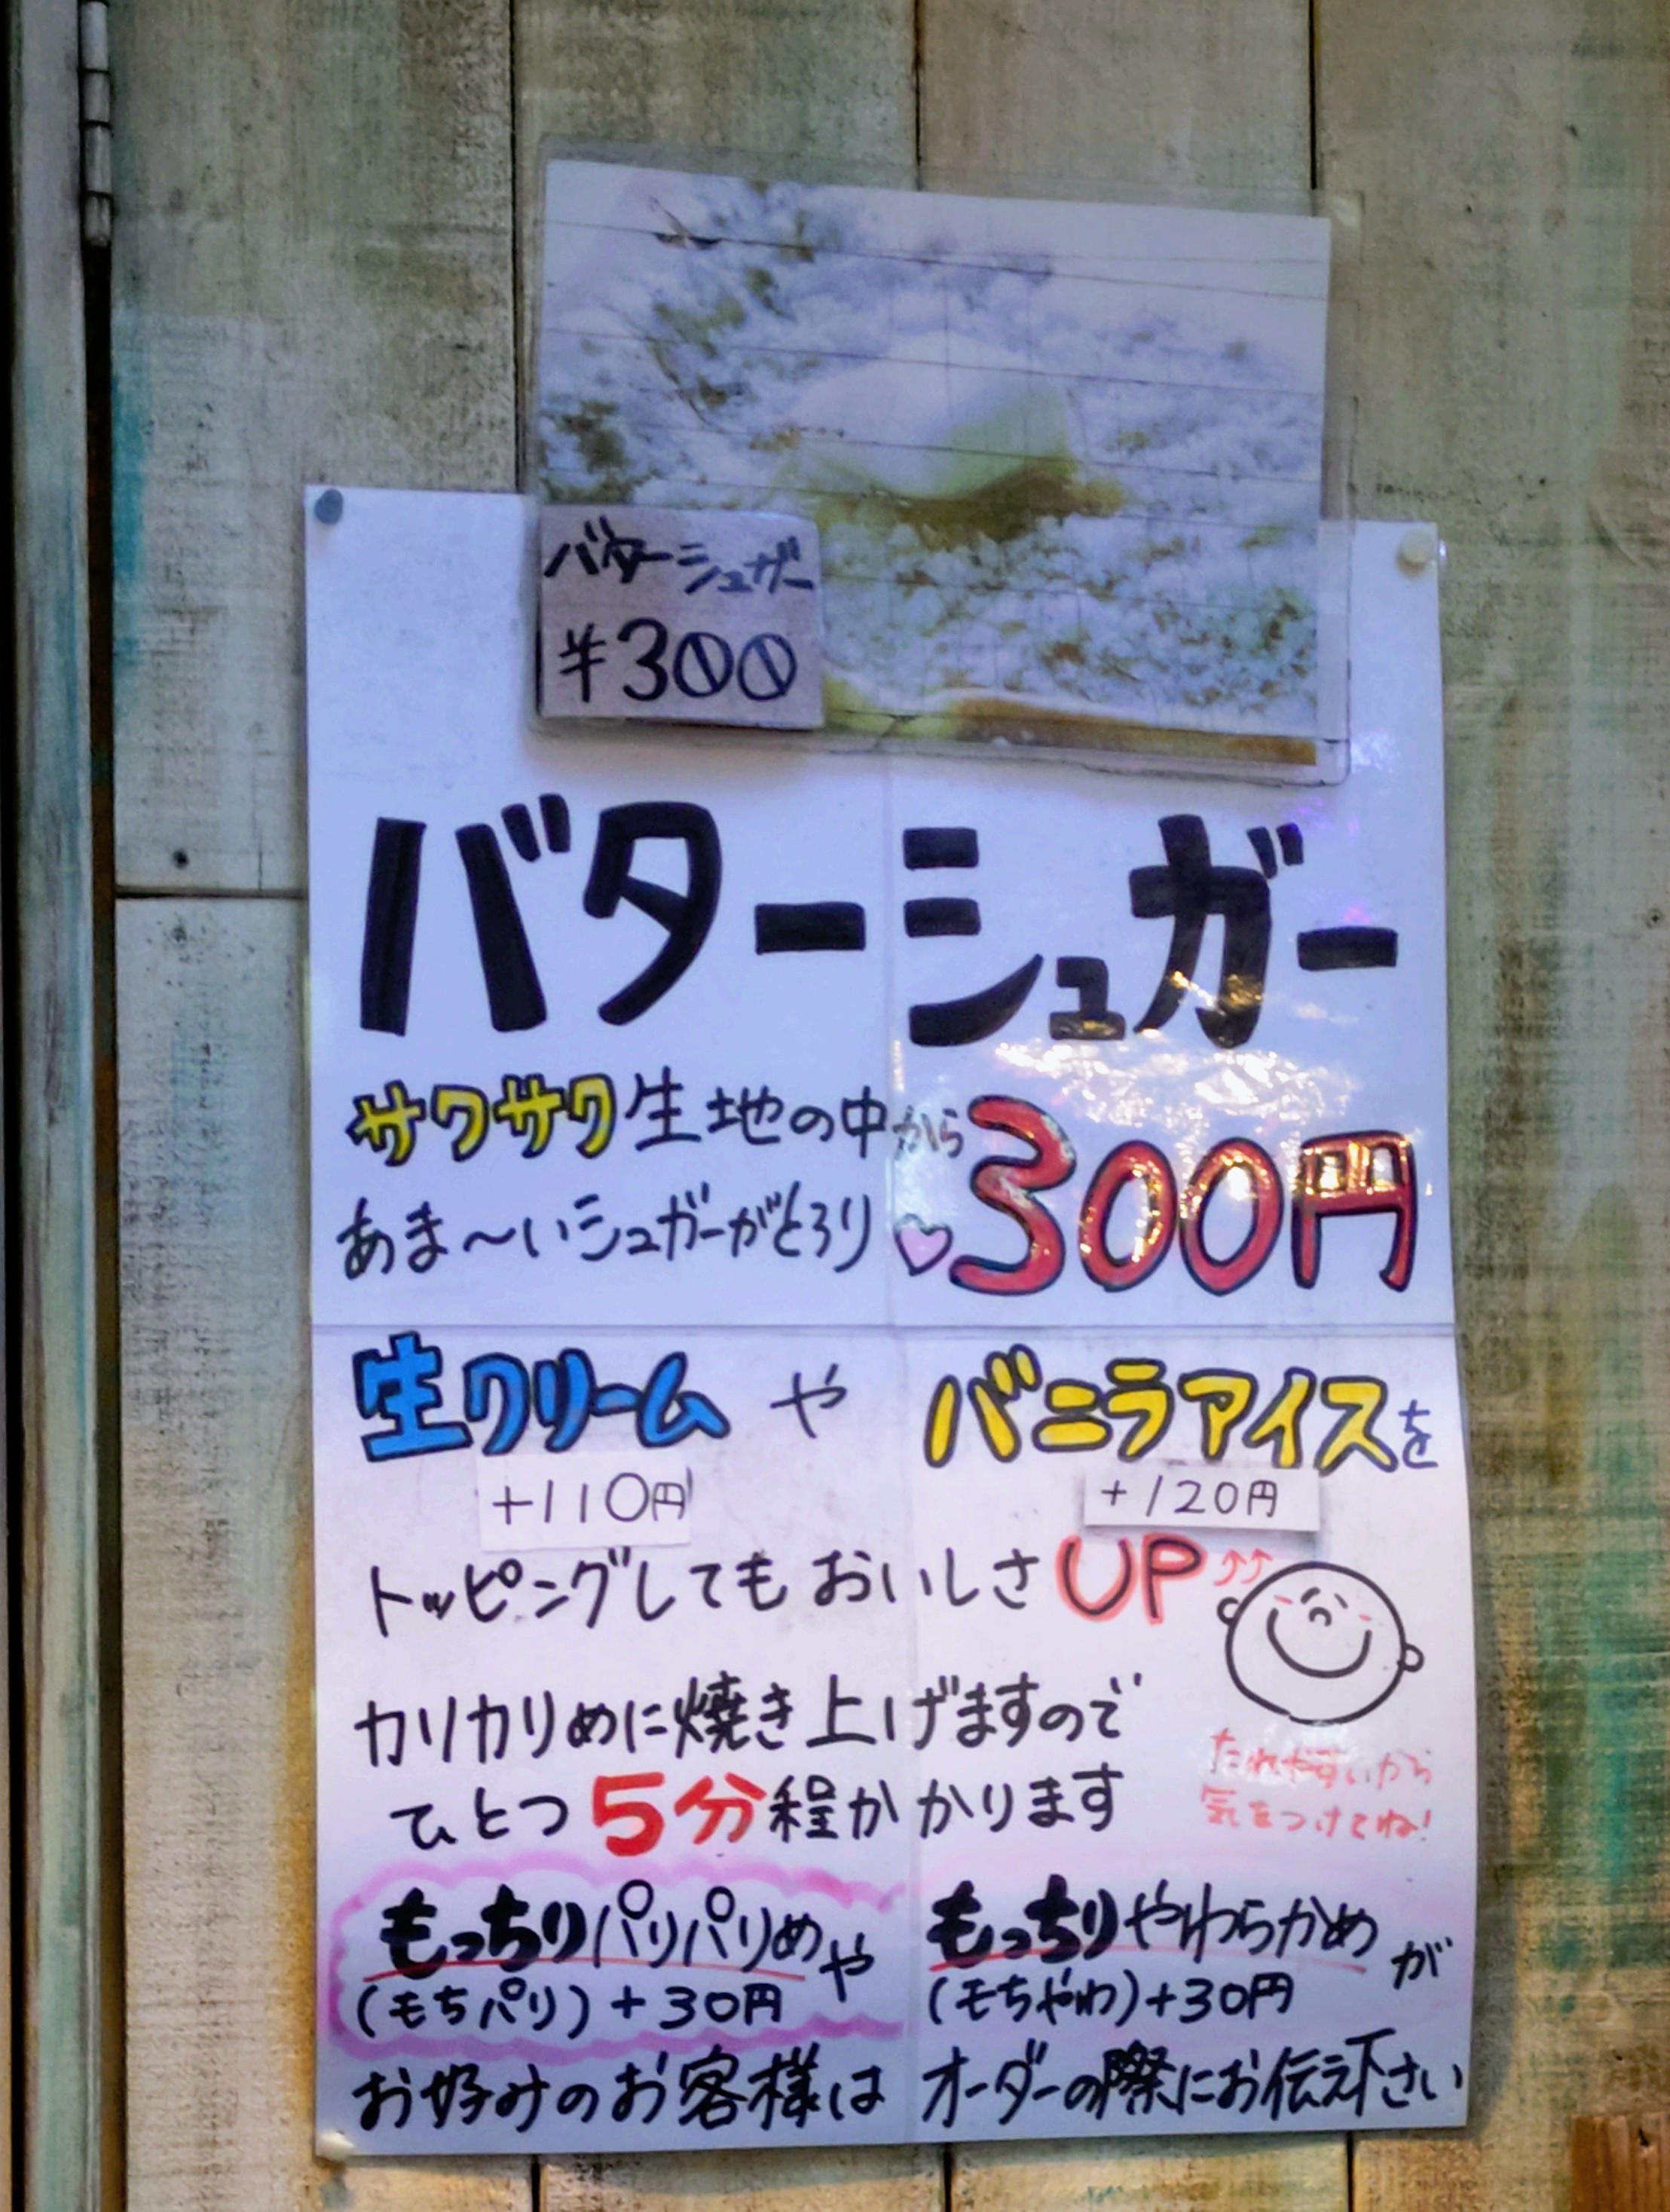 バターシュガー
¥300
バターシュガー
サクサク生地の中から
あま〜いシュガーがとろり♡
300円
生クリームやバニラアイスを
+110円 +120円
トッピングしてもおいしさUP↑↑
カリカリめに焼き上げますので
ひとつ5分程かかります
たれやすいから
気をつけてね!
もっちりパリパリめや
(もちパリ)+30円
もっちりやわらかめが
(もちやわ)+30円
お好みのお客様はオーダーの際にお伝え下さい